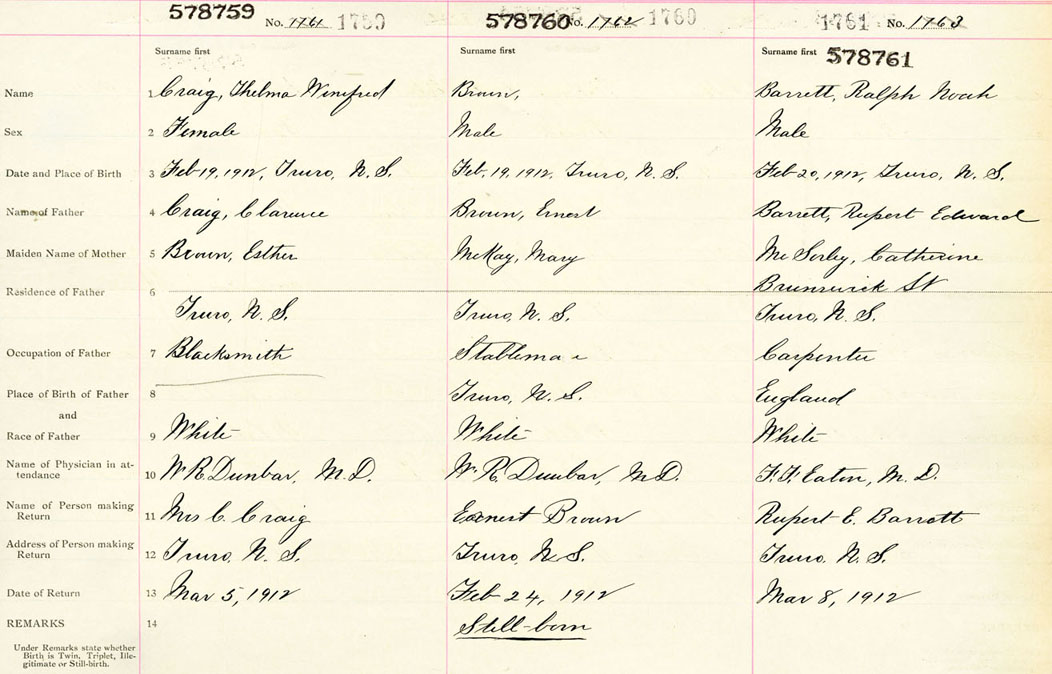 578759 No. 1761 1759 578760 No. 1762 1760 1761 No. 1763
Surname first Surname first Surname first 578761
Name 1 Craig, Thelma Winifred Brown, Barrett, Ralph Noah
Sex 2 Female Male Male
Date and Place of Birth 3 Feb 19, 1912, Truro, N. S. Feb. 19, 1912, Truro, N. S. Feb 20, 1912, Truro, N. S.
Name of Father 4 Craig, Clarence Brown, Ernest Barrett, Rupert Edward
Maiden Name of Mother 5 Brown, Esther McKay, Mary Mc Sorley, Catherine
Residence of Father 6 Brunswick St
Truro, N. S. Truro, N. S. Truro, N. S.
Occupation of Father 7 Blacksmith Stableman Carpenter
Place of Birth of Father 8 Truro, N. S. England
and
Race of Father 9 White White White
Name of Physician in at-
tendance 10 W. R. Dunbar, M. D. W. R. Dunbar, M. D. F. F. Eaton, M. D.
Name of Person making
Return 11 Mrs C. Craig Earnest Brown Rupert E. Barrett
Address of Person making
Return 12 Truro, N. S. Truro, N. S. Truro, N. S.
Date of Return 13 Mar 5, 1912 Feb 24, 1912 Mar 8, 1912
REMARKS 14 Still-born
Under Remarks state whether
Birth is Twin, Triplet, Ille-
gitimate or Still-birth.